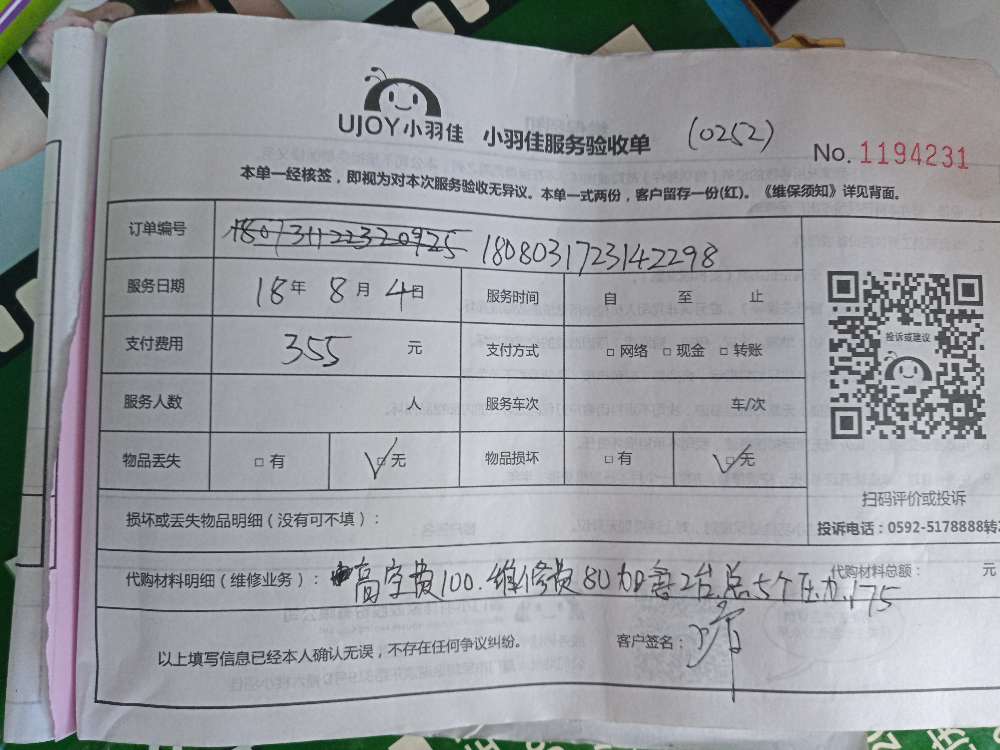 UJOY小羽佳 小羽佳服务验收单 (0252) No. 1194231
本单一经核签，即视为对本次服务验收无异议。本单一式两份，客户留存一份(红)。《维保须知》详见背面。
订单编号 180731122320925 1808031723142298
服务日期 18年 8月 4日 服务时间 自 至 止
支付费用 355 元 支付方式 □网络 □现金 □转账
投诉或建议
服务人数 人 服务车次 车/次
物品丢失 □有 ☑无 物品损坏 □有 ☑无
扫码评价或投诉
损坏或丢失物品明细（没有可不填）：
投诉电话：0592-5178888转
代购材料明细（维修业务）： 高空费100.维修费80加 2台 5个压力175
代购材料总额： 元
以上填写信息已经本人确认无误，不存在任何争议纠纷。 客户签名：